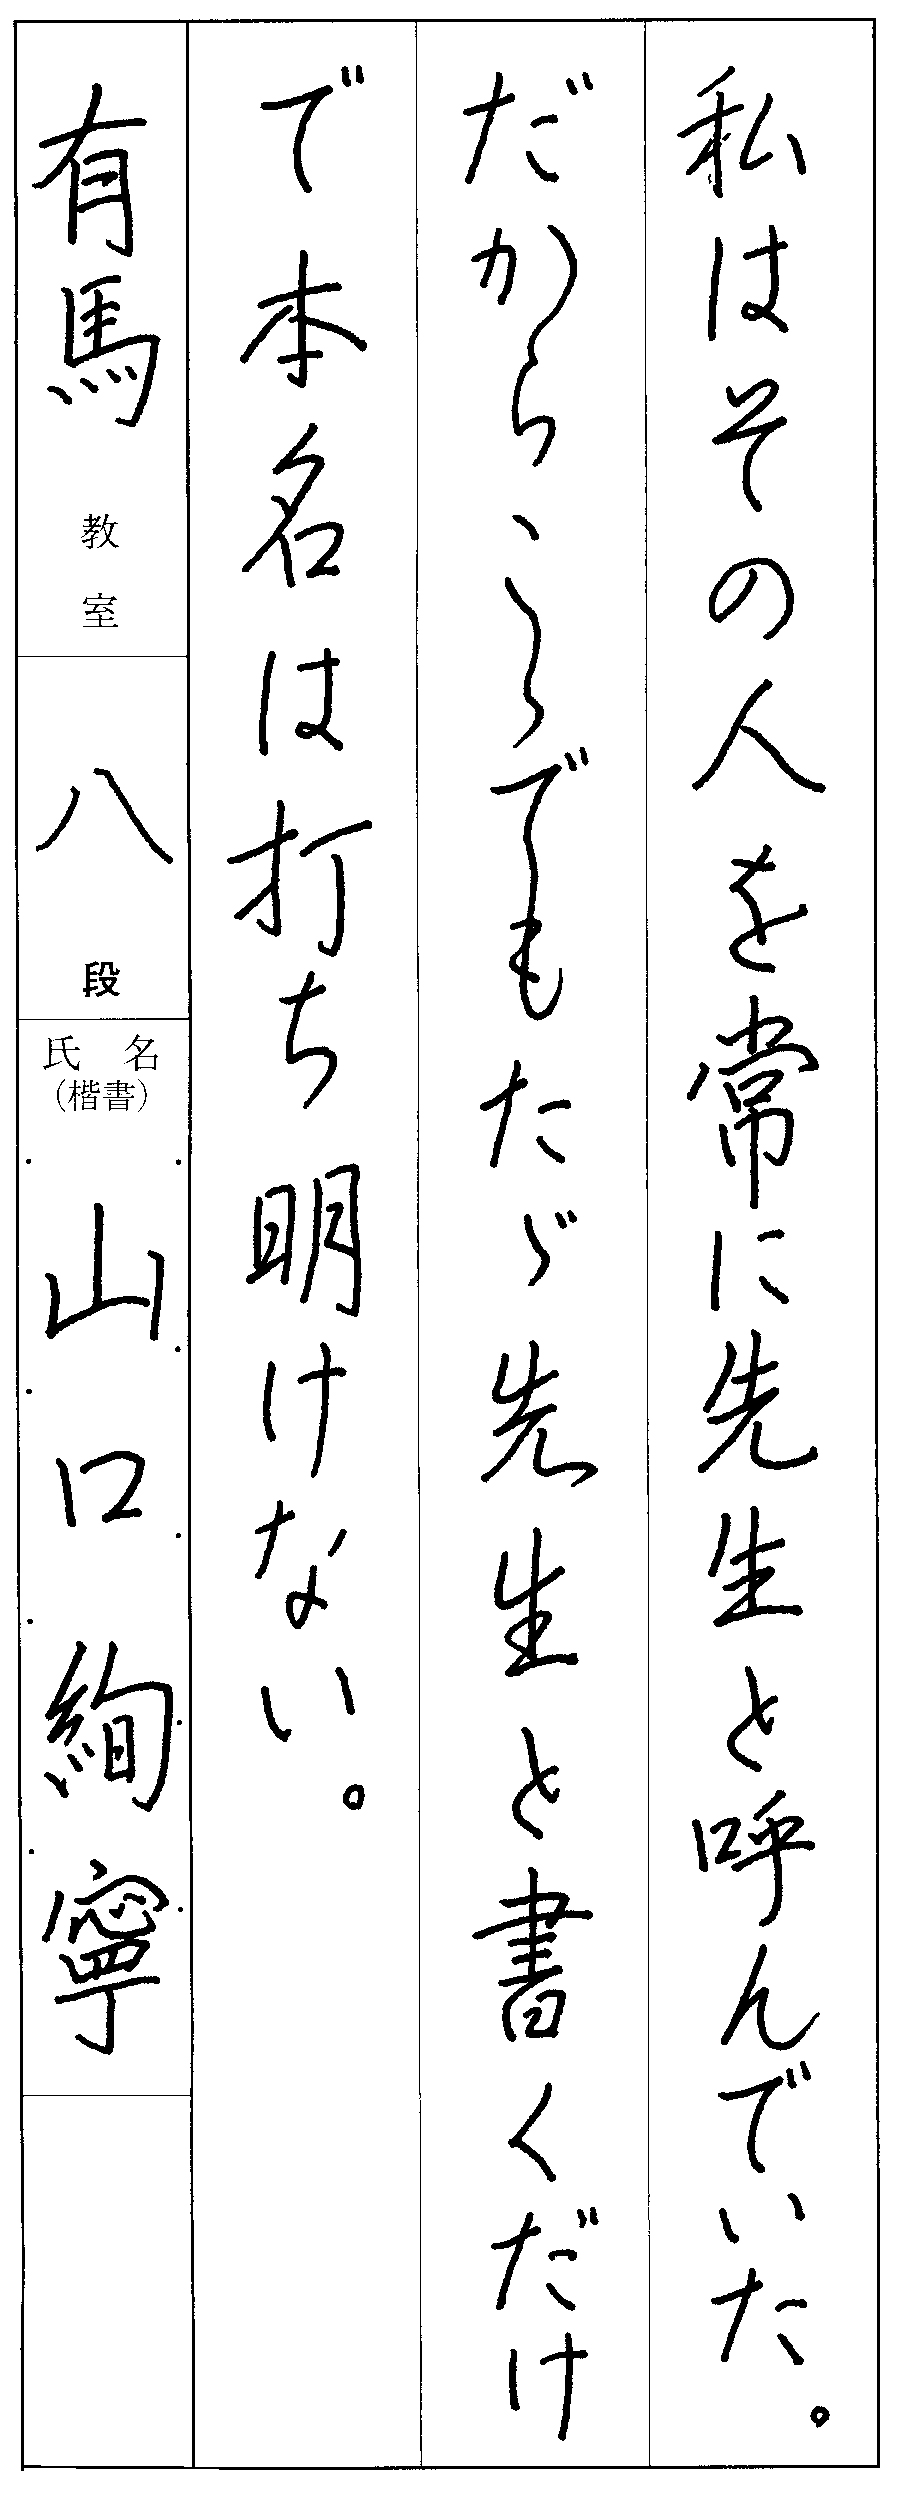 私はその人を常に先生と呼んでいた。
だからこゝでもたゞ先生と書くだけ
で本名は打ち明けない。
有馬教室
八段
氏名
(楷書)
山口絢寧